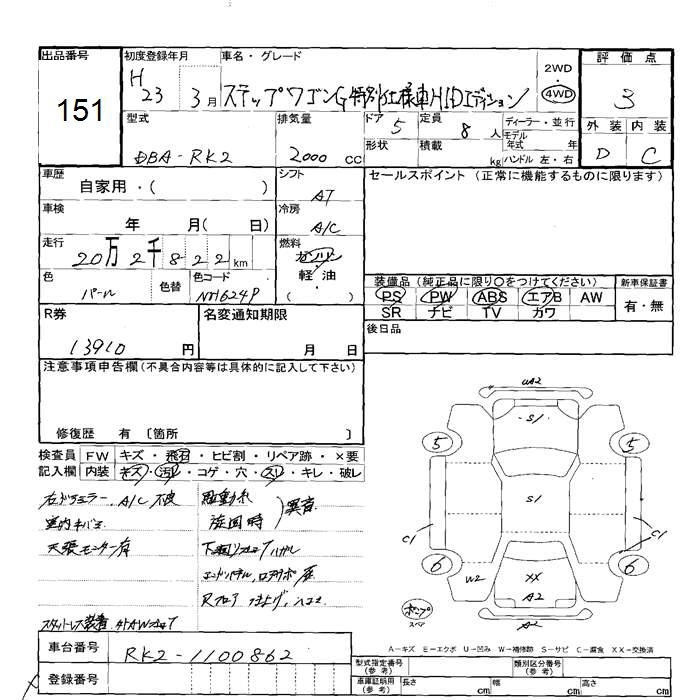 出品番号
151
初度登録年月
H 23 3月
車名・グレード
ステップワゴンG特別仕様車HIDエディション
2WD
・
4WD
評価点
3
型式
DBA-RK2
排気量
2000 cc
ドア 5
定員 8 人
形状
積載 kg
ディーラー・並行
モデル年式 年
ハンドル 左・右
外装 内装
D C
車歴
自家用・( )
シフト
AT
車検
年 月( 日)
冷房
A/C
走行
20万2千822km
燃料
ガソリン
・
軽油
( )
色
パール
色替
色コード
NH624P
セールスポイント(正常に機能するものに限ります)
装備品(純正品に限り○をつけてください)
PS PW ABS エアB AW
SR ナビ TV カワ
新車保証書
有・無
R券
13910 円
名変通知期限
月 日
後日品
注意事項申告欄(不具合内容等は具体的に記入して下さい)
修復歴 有 〔箇所 〕
検査員記入欄
FW キズ・飛石・ヒビ割・リペア跡・×要
内装 キズ・汚れ・コゲ・穴・スレ・キレ・破レ
右ドアミラー、A/C 不良
室内キバミ
天張モニター有
駆動系
旋回時
異音
スタットレス装着
UA2
S1
5 5
S1
C1 C1
6 6
W2
XX
A2
A2
スペア
A-キズ E-エクボ U-凹み W-補修跡 S-サビ C-腐食 XX-交換済
車台番号
RK2-1100862
登録番号
型式指定番号(参考)
類別区分番号(参考)
車庫証明用(参考)
長さ cm
幅 cm
高さ cm